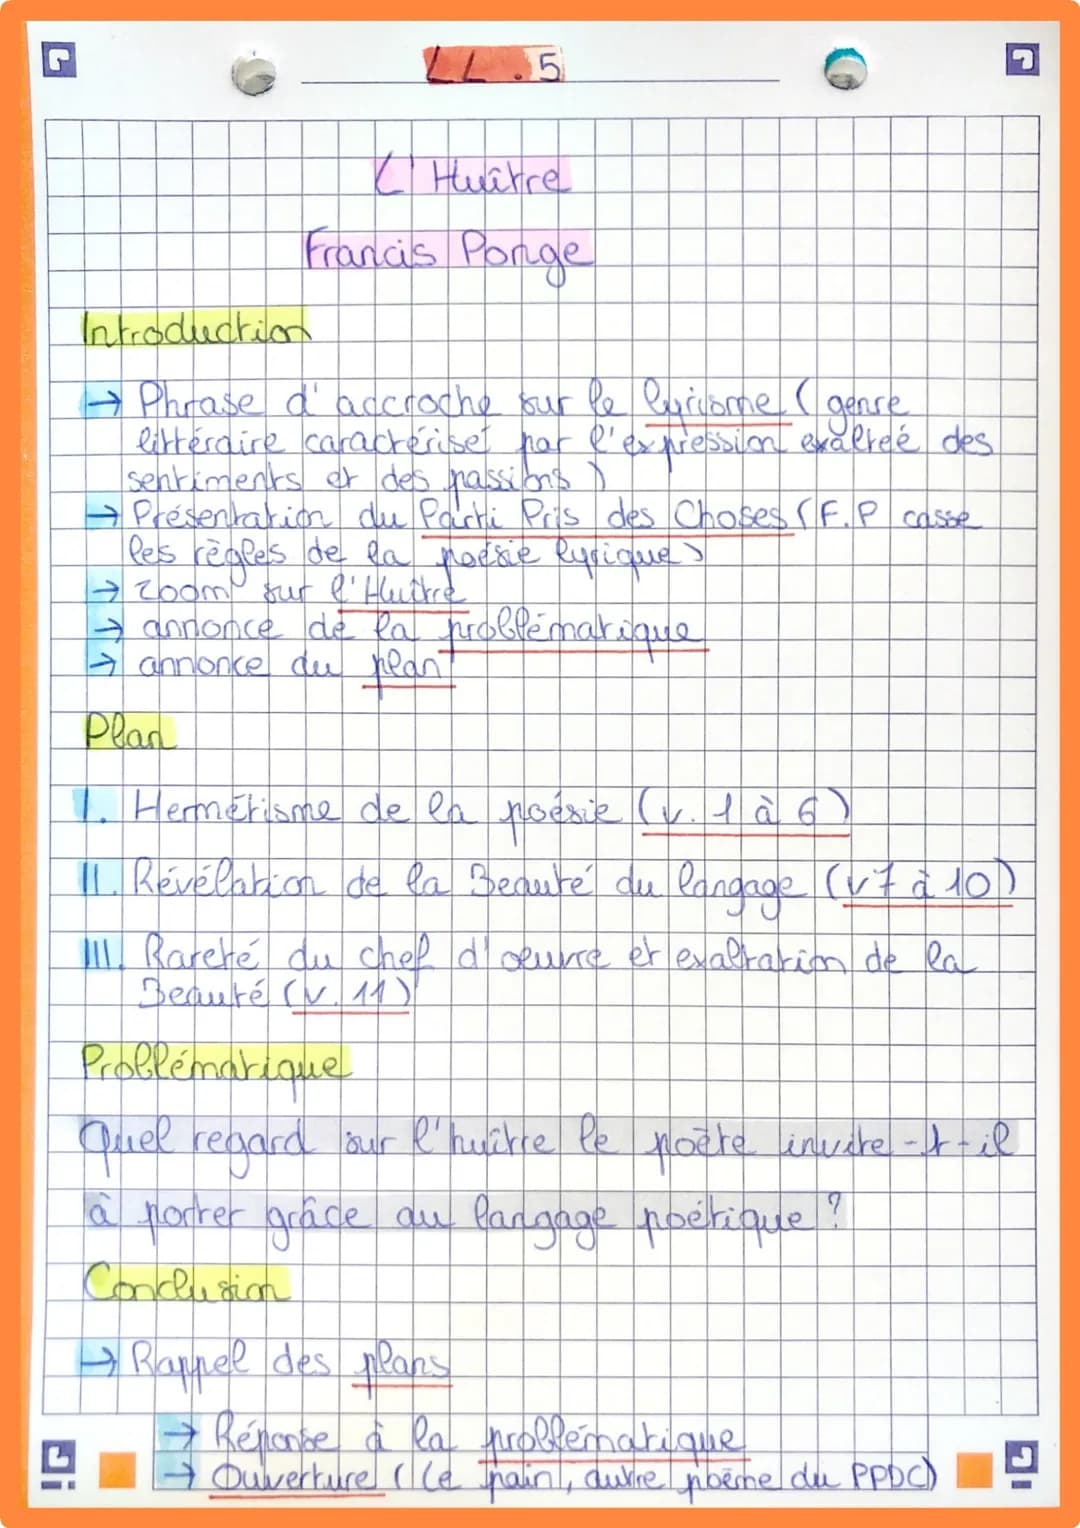 LL.5
L'Huître
Francis Ponge
Introduction
→ Phrase d'accroche sur le lyrisme (genre
littéraire caractérisé par l'expression exaltreé des
sentiments et des passions)
→ Présentation du Parti Pris des Choses (F.P casse
les règles de la poésie lyrique)
→ Zoom sur l'Huître
→ annonce de la problématique
→ annonce du plan
Plan
I. Hermétisme de la poésie (v. 1 à 6)
II. Révélation de la Beauté du langage (v7 à 10)
III. Rareté du chef d'œuvre et exaltation de la
Beauté (v. 11)
Problématique
Quel regard sur l'huître le poète invite-t-il
à porter grâce au langage poétique ?
Conclusion
→ Rappel des plans
→ Réponse à la problématique
→ Ouverture (Le pain, autre poème du PPDC)